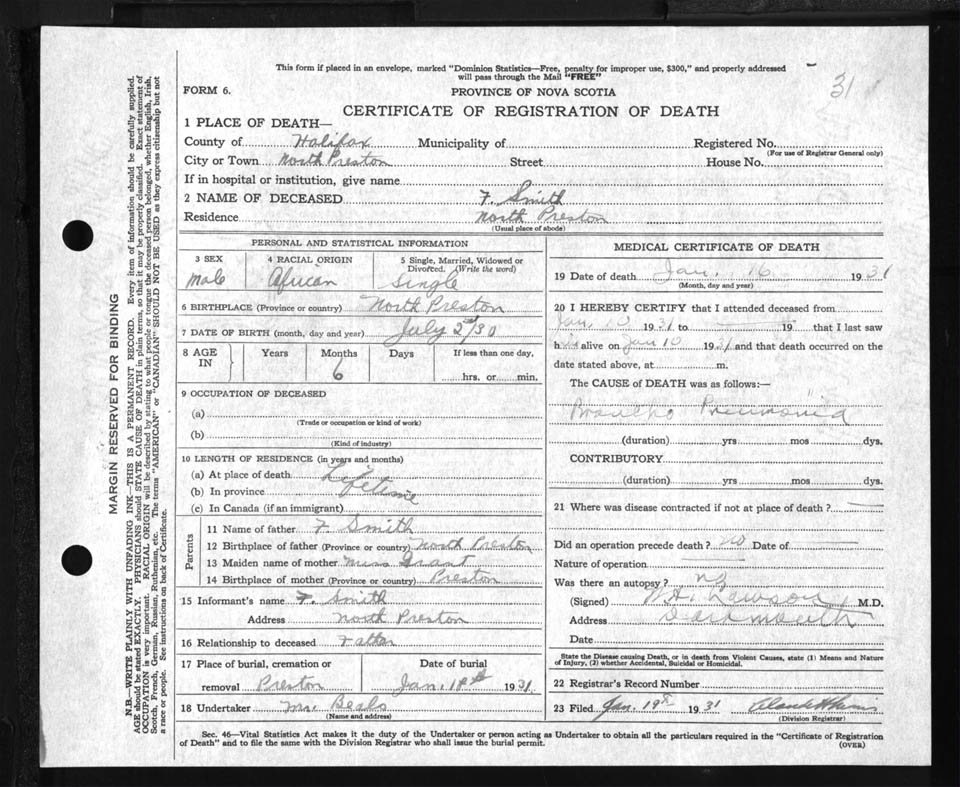 This form if placed in an envelope, marked "Dominion Statistics—Free, penalty for improper use, $300," and properly addressed
will pass through the Mail "FREE"
31
FORM 6.
PROVINCE OF NOVA SCOTIA
CERTIFICATE OF REGISTRATION OF DEATH
1 PLACE OF DEATH—
County of Halifax Municipality of Registered No.
(For use of Registrar General only)
City or Town North Preston Street House No.
If in hospital or institution, give name
2 NAME OF DECEASED F. Smith
Residence North Preston
(Usual place of abode)
PERSONAL AND STATISTICAL INFORMATION
3 SEX 4 RACIAL ORIGIN 5 Single, Married, Widowed or
Divorced. (Write the word)
male African Single
6 BIRTHPLACE (Province or country) North Preston
7 DATE OF BIRTH (month, day and year) July
8 AGE IN Years Months Days If less than one day,
6 hrs. or min.
9 OCCUPATION OF DECEASED
(a)
(Trade or occupation or kind of work)
(b)
(Kind of industry)
10 LENGTH OF RESIDENCE (in years and months)
(a) At place of death
(b) In province Lifetime
(c) In Canada (if an immigrant)
Parents
11 Name of father F. Smith
12 Birthplace of father (Province or country) North Preston
13 Maiden name of mother Miss Grant
14 Birthplace of mother (Province or country) Preston
15 Informant's name F. Smith
Address North Preston
16 Relationship to deceased Father
17 Place of burial, cremation or Date of burial
removal Preston Jan. 18th 1931
18 Undertaker Mr. Beals
(Name and address)
MEDICAL CERTIFICATE OF DEATH
19 Date of death Jan. 16 1931
(Month, day and year)
20 I HEREBY CERTIFY that I attended deceased from
Jan. 10 1931 to 19 that I last saw
h alive on Jan 10 1931 and that death occurred on the
date stated above, at m.
The CAUSE of DEATH was as follows:—
Broncho Pneumonia
(duration) yrs mos dys.
CONTRIBUTORY
(duration) yrs mos dys.
21 Where was disease contracted if not at place of death?
Did an operation precede death? no Date of
Nature of operation
Was there an autopsy? no
(Signed) W.H. Lawson M.D.
Address Dartmouth
Date
State the Disease causing Death, or in death from Violent Causes, state (1) Means and Nature
of Injury, (2) whether Accidental, Suicidal or Homicidal.
22 Registrar's Record Number
23 Filed Jan. 19th 1931
(Division Registrar)
Sec. 46—Vital Statistics Act makes it the duty of the Undertaker or person acting as Undertaker to obtain all the particulars required in the "Certificate of Registration
of Death" and to file the same with the Division Registrar who shall issue the burial permit.
(OVER)
MARGIN RESERVED FOR BINDING
N.B.—WRITE PLAINLY WITH UNFADING INK—THIS IS A PERMANENT RECORD. Every item of information should be carefully supplied.
AGE should be stated EXACTLY. PHYSICIANS should STATE CAUSE OF DEATH in plain terms, so that it may be properly classified. Exact statement of
OCCUPATION is very important. RACIAL ORIGIN will be described by stating to what people or tongue the deceased person belonged, whether English, Irish,
Scotch, French, German, Russian, Ruthenian, etc. The terms "AMERICAN" or "CANADIAN" SHOULD NOT BE USED as they express citizenship but not
a race or people. See instructions on back of Certificate.